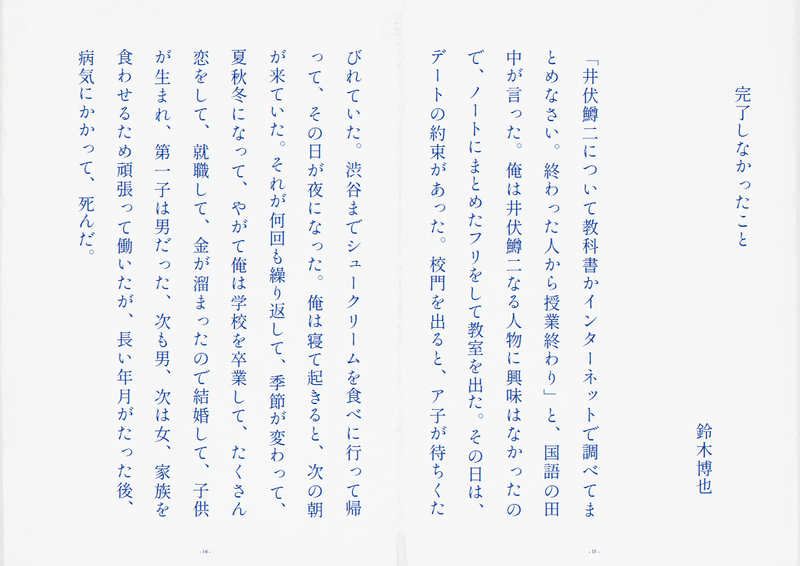 完了しなかったこと
鈴木博也
「井伏鱒二について教科書かインターネットで調べてま
とめなさい。終わった人から授業終わり」と、国語の田
中が言った。俺は井伏鱒二なる人物に興味はなかったの
で、ノートにまとめたフリをして教室を出た。その日は、
デートの約束があった。校門を出ると、ア子が待ちくた
- 15 -
びれていた。渋谷までシュークリームを食べに行って帰
って、その日が夜になった。俺は寝て起きると、次の朝
が来ていた。それが何回も繰り返して、季節が変わって、
夏秋冬になって、やがて俺は学校を卒業して、たくさん
恋をして、就職して、金が溜まったので結婚して、子供
が生まれ、第一子は男だった、次も男、次は女、家族を
食わせるため頑張って働いたが、長い年月がたった後、
病気にかかって、死んだ。
- 16 -